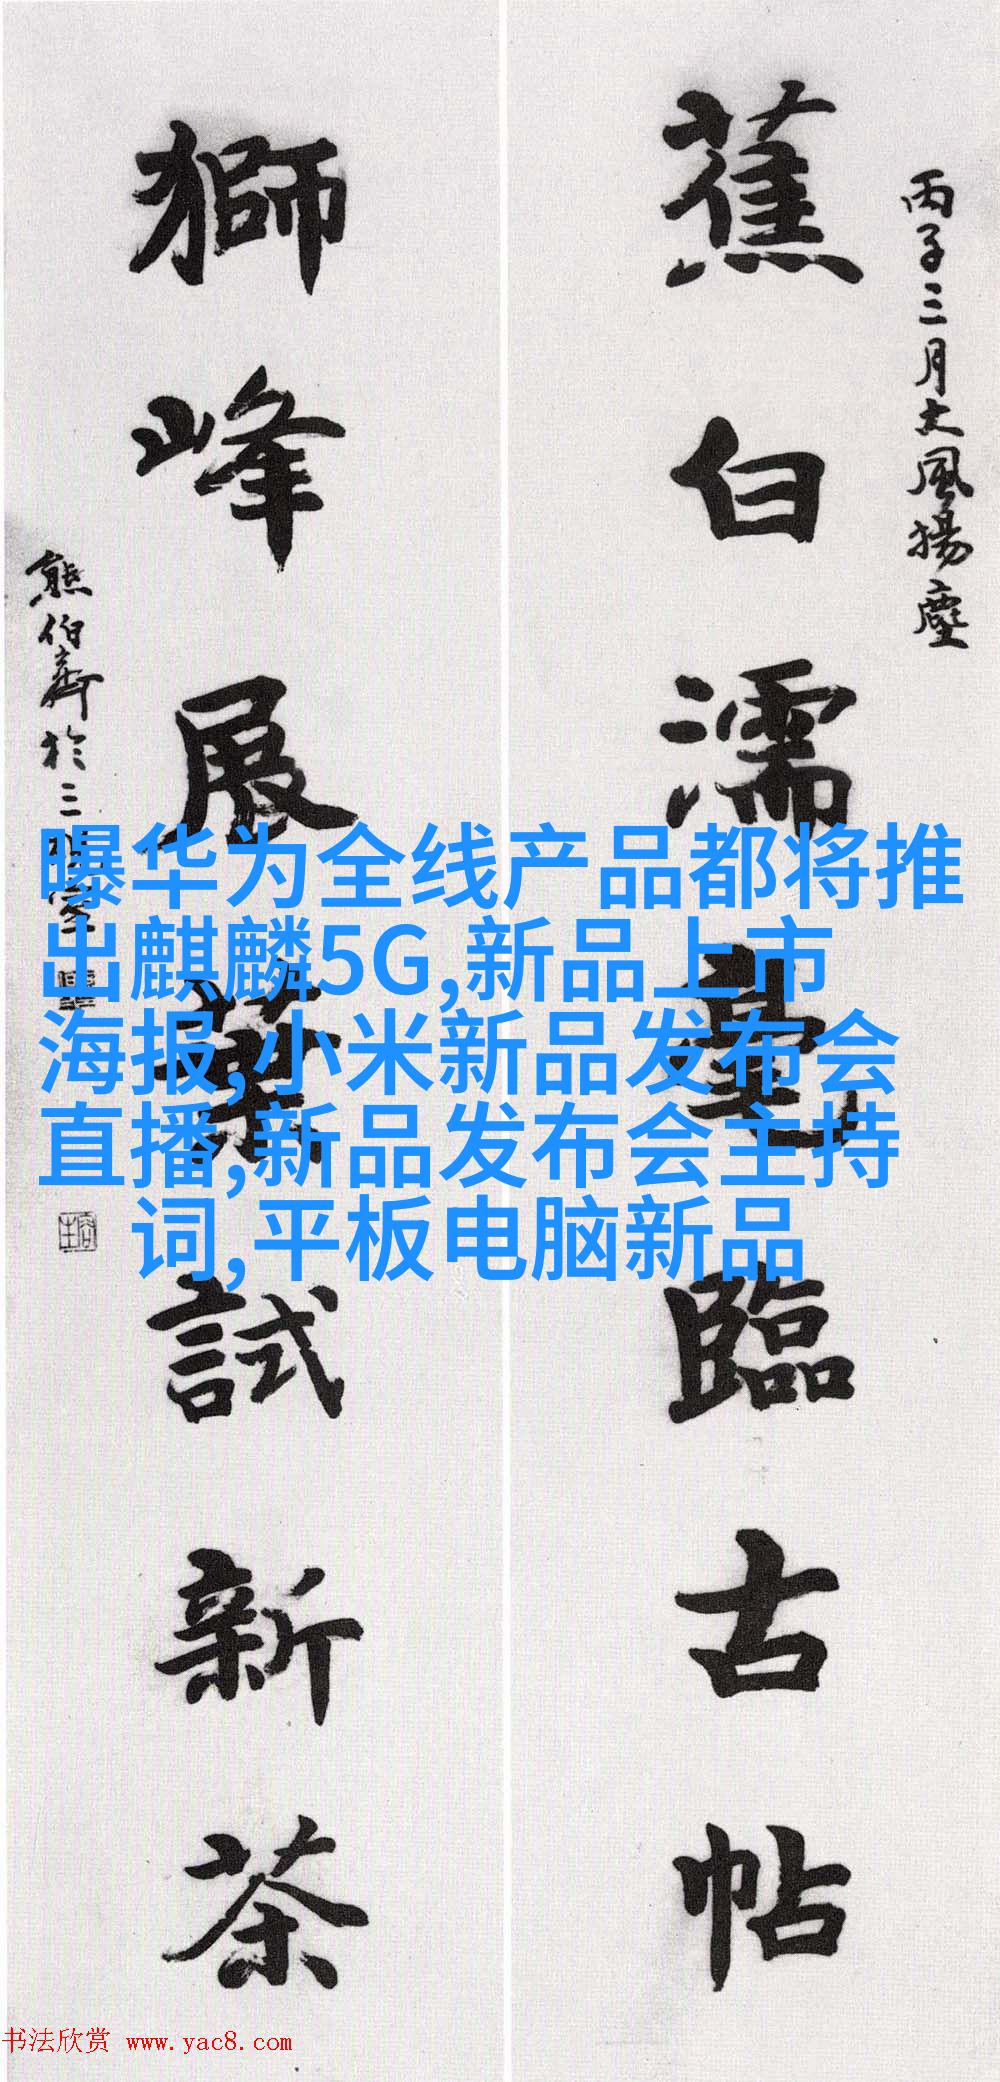 丙子三月大風揚塵
蕉白濡毫臨古帖
獅峰展葉試新茶
熊伯齊於三室
曝华为全线产品都将推
出麒麟5G,新品上市
海报,小米新品发布会
直播,新品发布会主持
词,平板电脑新品
书法欣赏 www.yac8.com